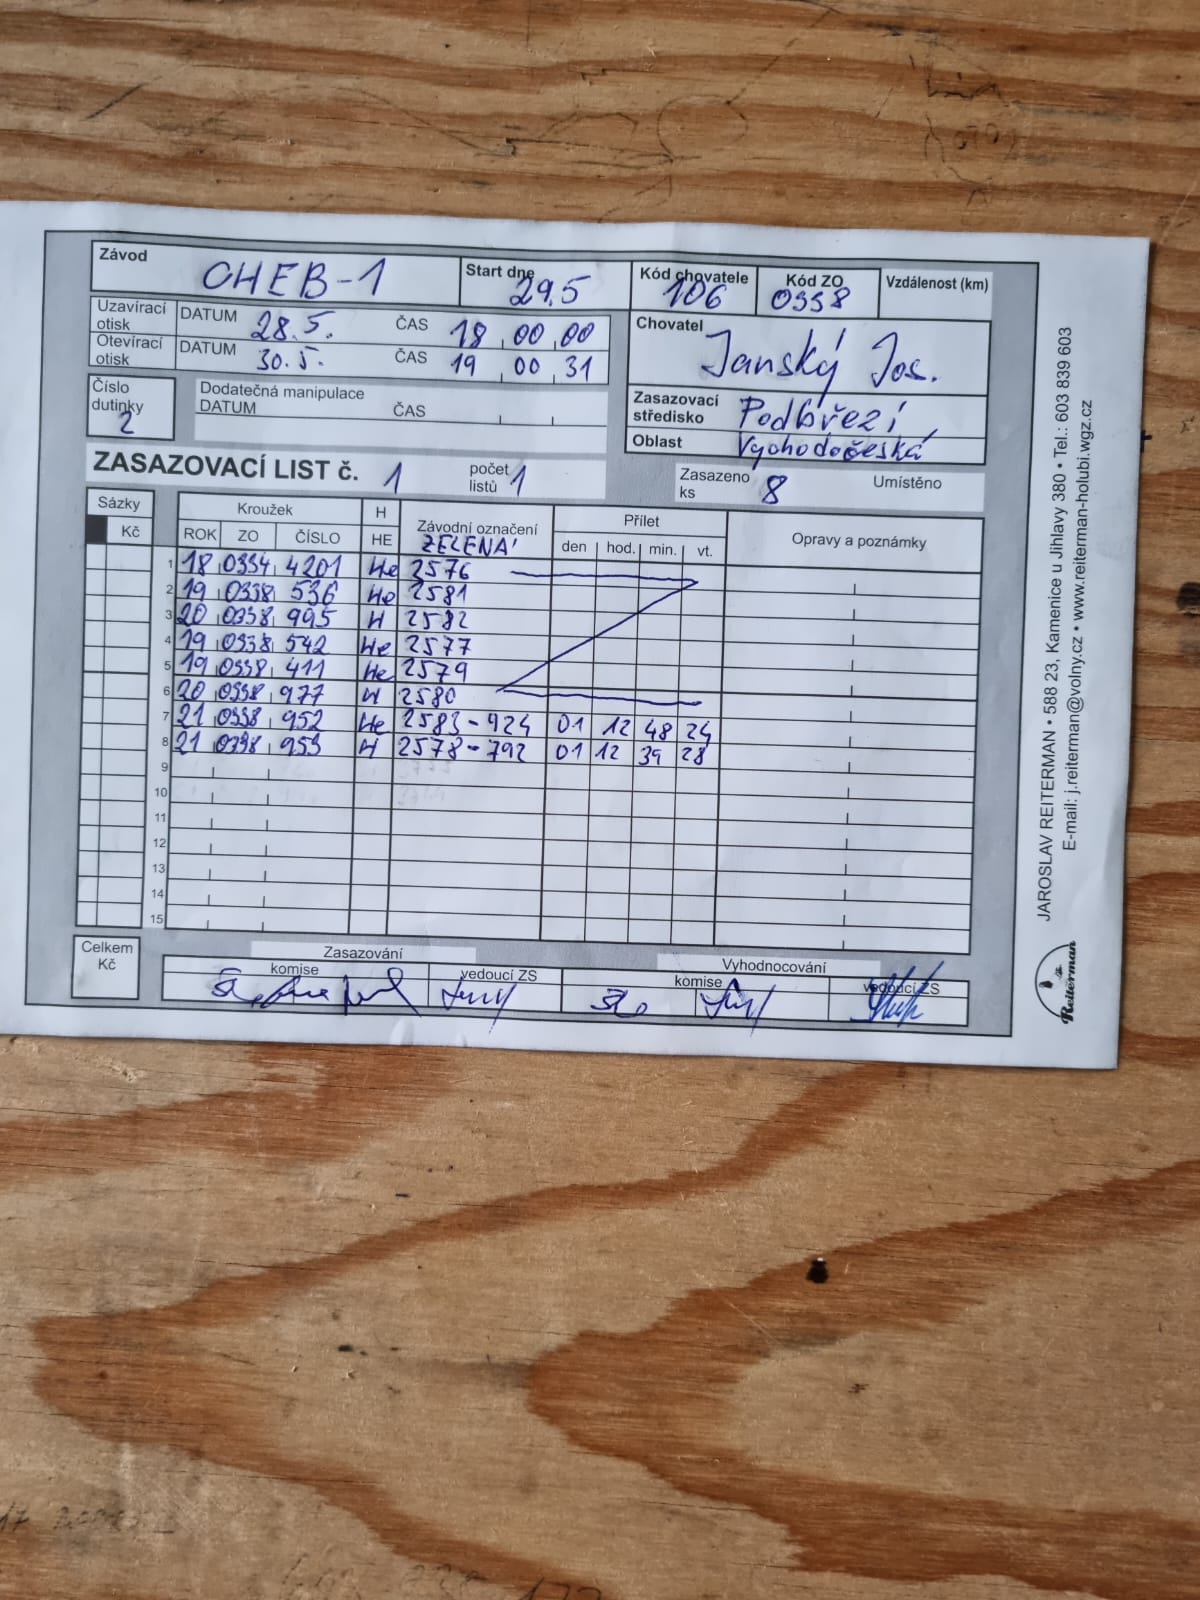 Závod CHEB-1 Start dne 29.5 Kód chovatele 106 Kód ZO 0338 Vzdálenost (km)
Uzavírací otisk DATUM 28.5. ČAS 18 00 00
Otevírací otisk DATUM 30.5. ČAS 19 00 31
Chovatel Janský Jos.
Číslo dutinky 2
Dodatečná manipulace
DATUM ČAS
Zasazovací středisko Podbřezí
Oblast Vychodočeská
ZASAZOVACÍ LIST č. 1 počet listů 1 Zasazeno ks 8 Umístěno
Sázky Kroužek H Závodní označení Přílet Opravy a poznámky
Kč ROK ZO ČÍSLO HE ZELENÁ den hod. min. vt.
1 18 0334 4201 He 2576
2 19 0338 536 He 2581
3 20 0338 995 H 2582
4 19 0338 542 He 2577
5 19 0338 411 He 2579
6 20 0338 977 H 2580
7 21 0338 952 He 2583-924 01 12 48 24
8 21 0338 953 H 2578-792 01 12 39 28
9
10
11
12
13
14
15
Celkem Kč
Zasazování Vyhodnocování
komise vedoucí ZS komise vedoucí ZS
JAROSLAV REITERMAN • 588 23, Kamenice u Jihlavy 380 • Tel.: 603 839 603
E-mail: j.reiterman@volny.cz • www.reiterman-holubi.wgz.cz
Reiterman